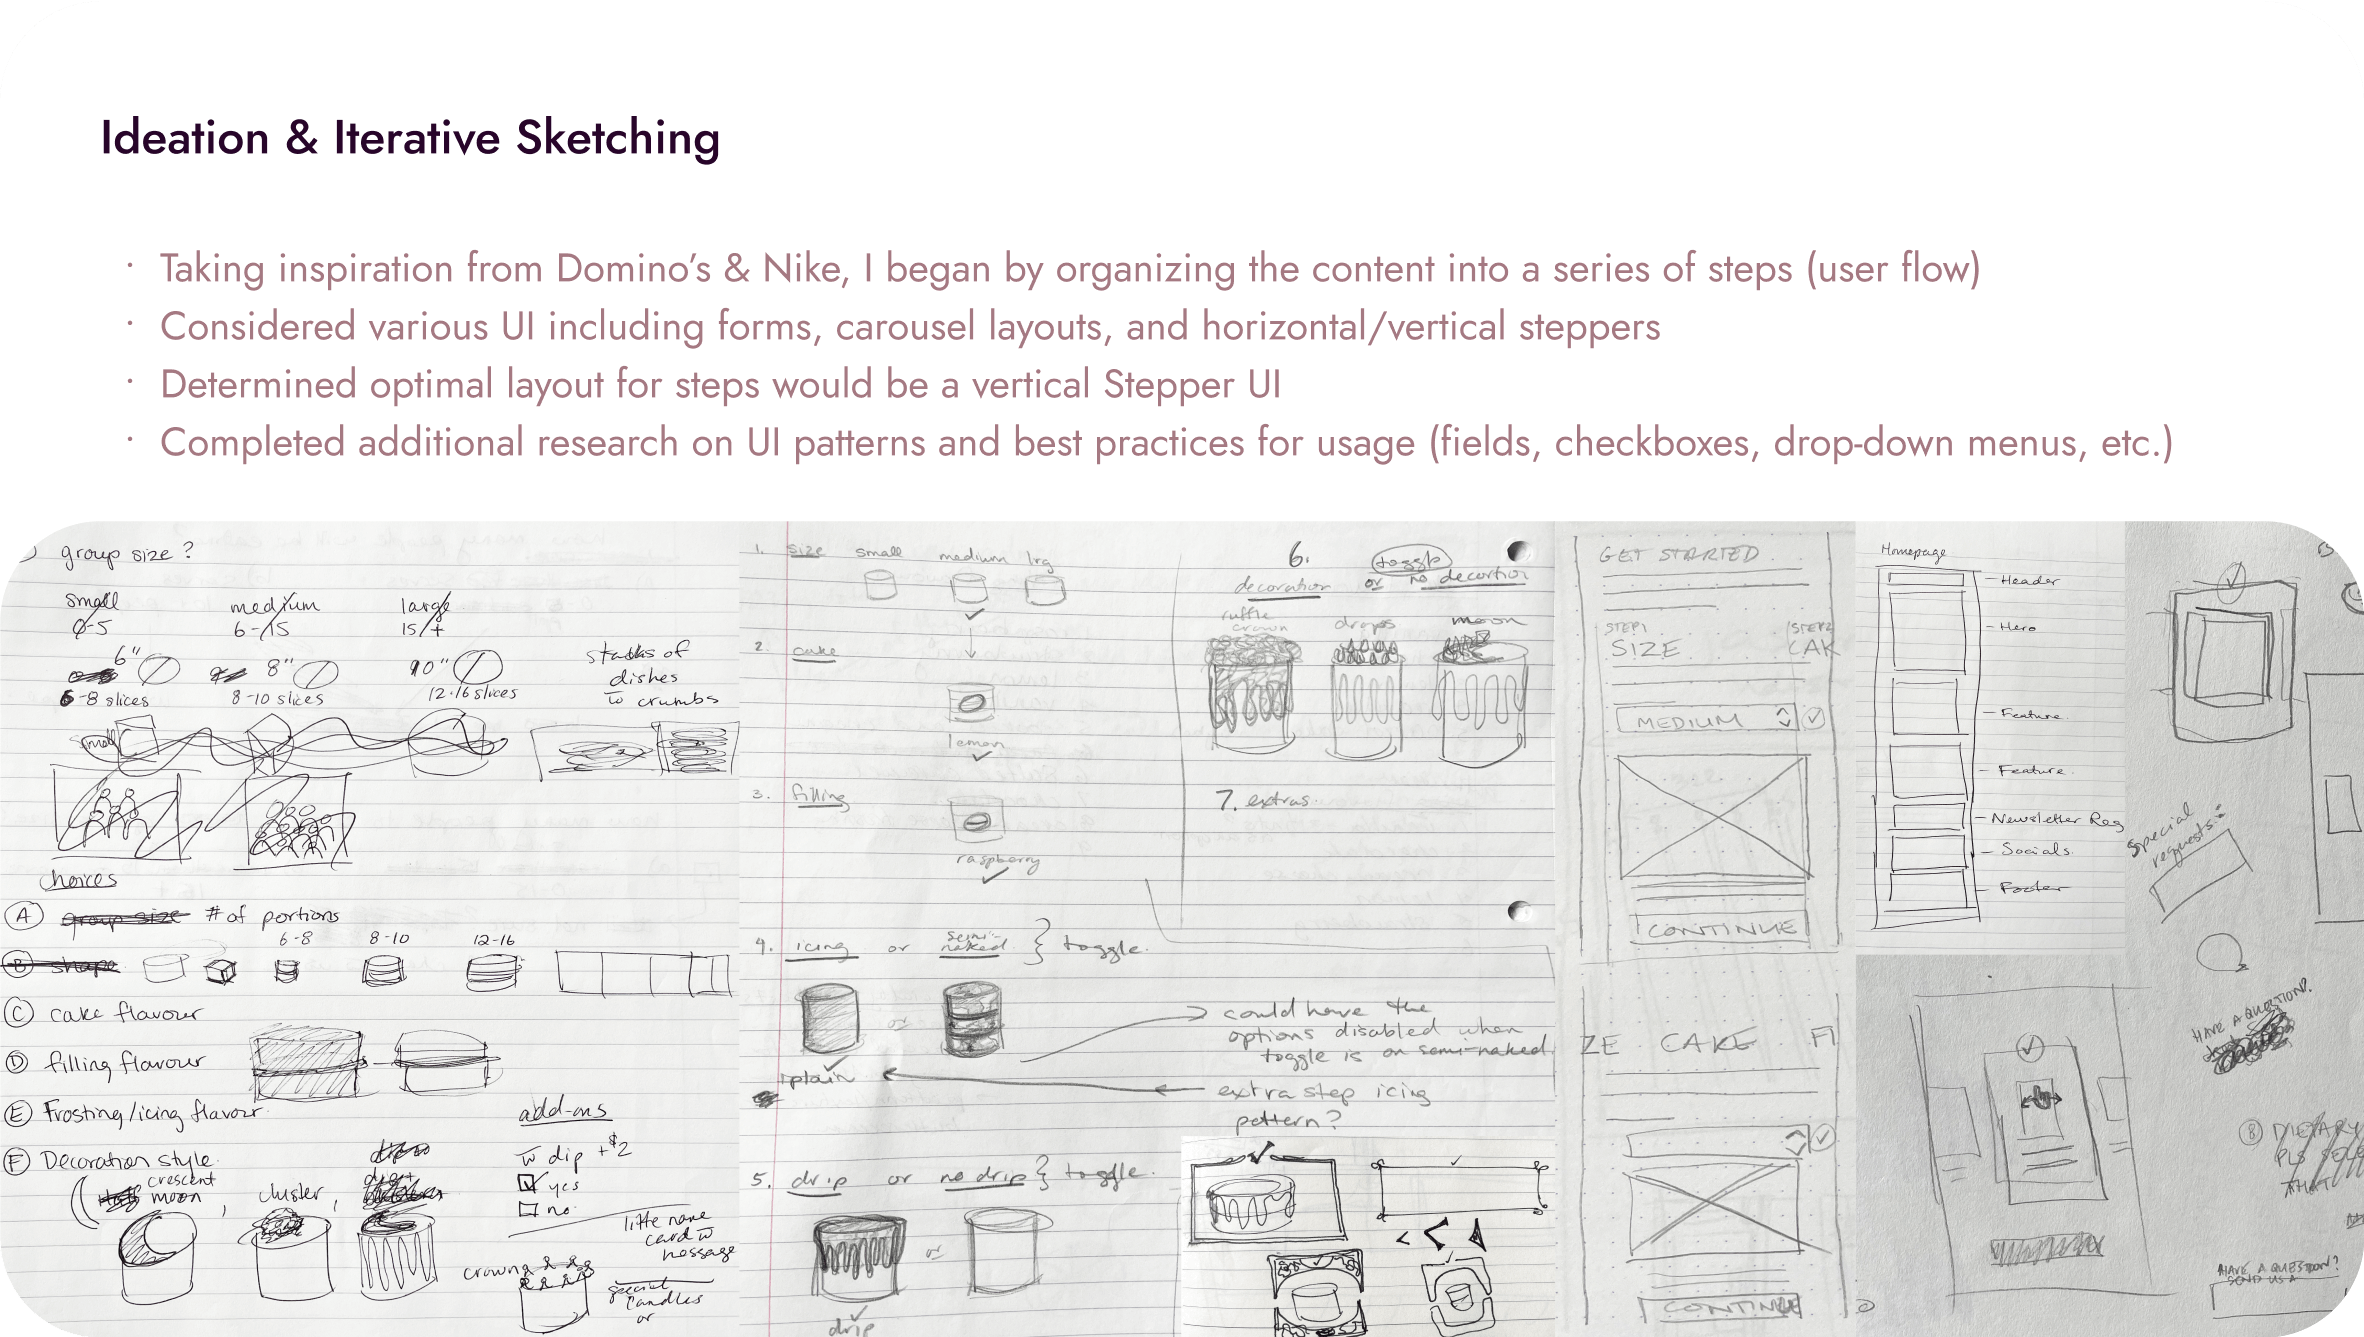 Ideation & Iterative Sketching
· Taking inspiration from Domino's & Nike, I began by organizing the content into a series of steps (user flow)
· Considered various UI including forms, carousel layouts, and horizontal/vertical steppers
· Determined optimal layout for steps would be a vertical Stepper UI
· Completed additional research on UI patterns and best practices for usage (fields, checkboxes, drop-down menus, etc.)
group size ?
small medium large
0-5 6-15 15/+
6" 8" 10"
6-8 slices 8-10 slices 12-16 slices
stacks of
dishes
w crumbs
small
choices
A group size # of portions
6-8 8-10 12-16
B shape
C cake flavour
D filling flavour
E Frosting/icing flavour
F Decoration style
crescent
moon, cluster,
add-ons
w dip +$2
yes
no
little name
card w
message
crown
special
candles
or
1. size small medium lrg
2. cake
lemon
3. filling
raspberry
4. icing or semi-naked } toggle
plain
could have the
options disabled when
toggle is on semi-naked
extra step icing
pattern?
5. drip or no drip } toggle
or
drip
6. toggle
decoration or no decortion
ruffle
crown drops moon
7. extras
GET STARTED
STEP 1 STEP 2
SIZE CAK
MEDIUM
CONTINUE
ZE CAKE FI
CONTINUE
Homepage
Header
Hero
Feature
Feature
Newsletter Reg
Socials
Footer
special
requests:
HAVE A QUESTION?
8 DIETARY
PLS SELE
THAT
HAVE A QUESTION?
SEND US A